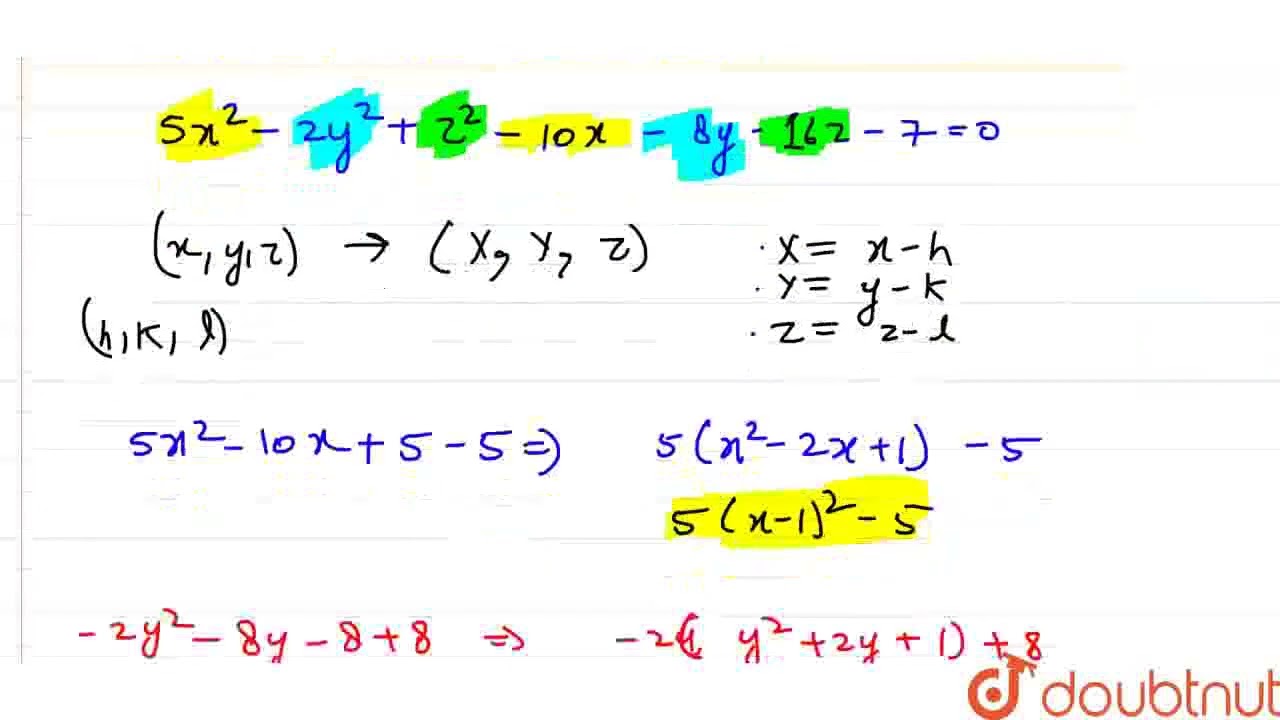 5x² - 2y² + z² - 10x - 8y - 16z - 7 = 0
(x, y, z) → (X, Y, Z) · X = x - h
· Y = y - k
(h, k, l) · Z = z - l
5x² - 10x + 5 - 5 ⇒ 5(x² - 2x + 1) - 5
5(x - 1)² - 5
-2y² - 8y - 8 + 8 ⇒ -2( y² + 2y + 1) + 8
doubtnut